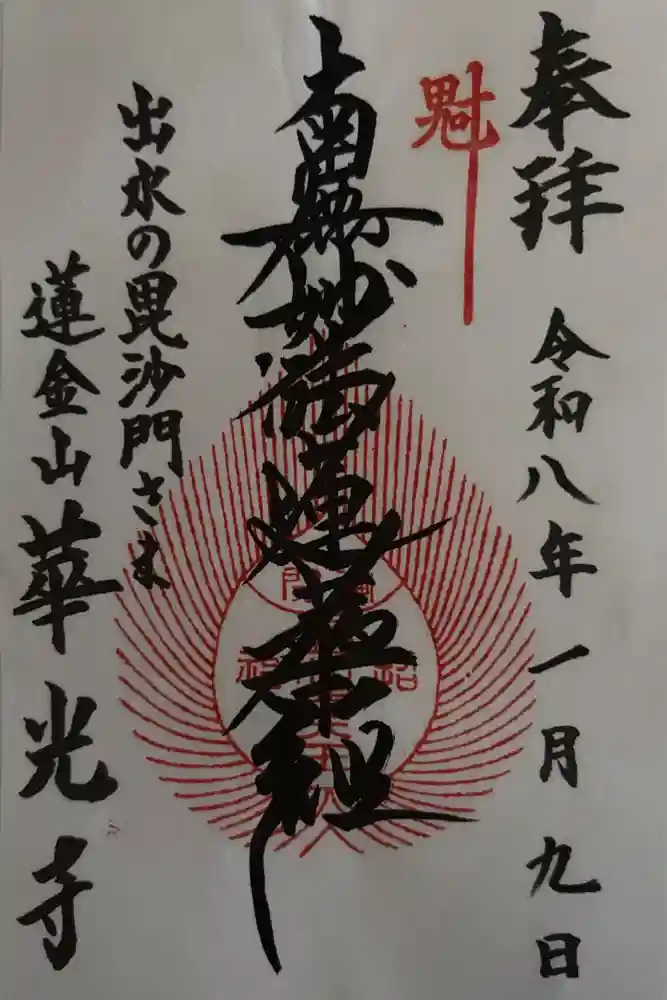 奉拝 令和八年一月九日
魁
南無妙法蓮華経
出水の毘沙門さま
蓮金山 華光寺